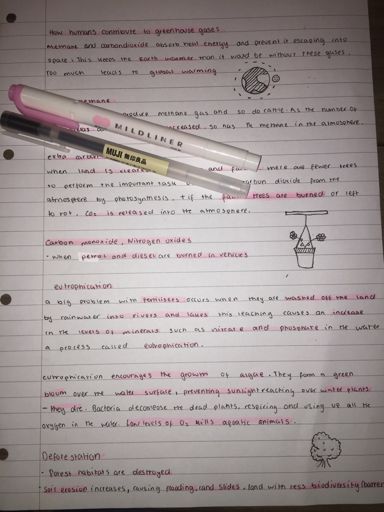 How humans contribute to greenhouse gases
methane and carbondioxide absorb heat energy and prevent it escaping into
space. This keeps the Earth warmer than it would be without these gases.
Too much leads to global warming
methane
produce methane gas and so do cattle. As the number of
increased, so has the methane in the atmosphere.
MILDLINER
MUJI 無印良品
extra
when land is there are fewer trees
to perform the important task dioxide from the
atmosphere by photosynthesis. + if the trees are burned or left
to rot. CO2 is released into the atmosphere.
Carbon monoxide, Nitrogen oxides
- when petrol and diesel are burned in vehicles
eutrophication
a big problem with fertilisers occurs when they are washed off the land
by rainwater into rivers and lakes this leaching causes an increase
in the levels of minerals such as nitrate and phosphate in the water
a process called eutrophication.
eutrophication encourages the growth of algae. They form a green
bloom over the water surface, preventing sunlight reaching over water plants
- they die. Bacteria decompose the dead plants, respiring and using up all the
oxygen in the water. Low levels of O2 kills aquatic animals.
Deforestation
- Forest habitats are destroyed.
- Soil erosion increases, causing flooding, land slides. land with less biodiversity